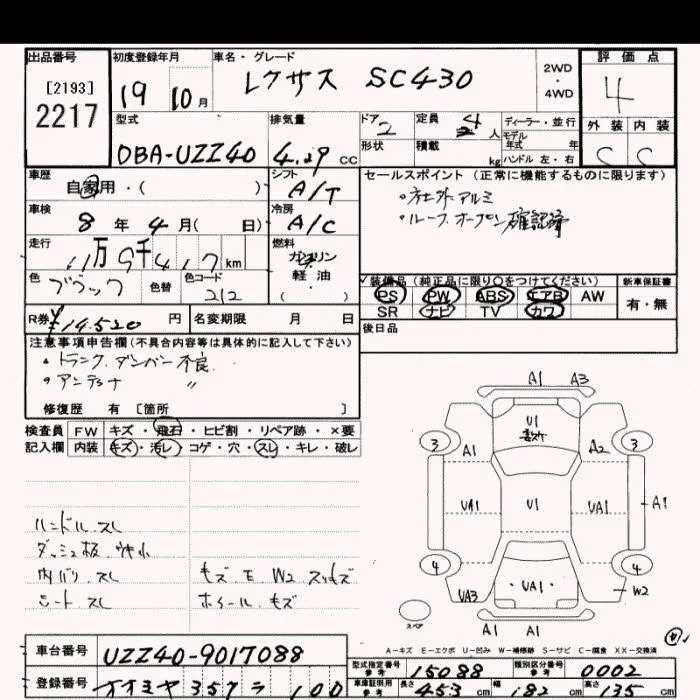 出品番号 初度登録年月 車名・グレード 評価点
[2193]
2217
19 10月 レクサス SC430 2WD・4WD 4
型式 排気量 ドア 定員 ディーラー・並行
DBA-UZZ40 4.29 CC 2 4 人 モデル年式 年
形状 積載 kg ハンドル 左・右
外装 内装
C C
車歴 シフト セールスポイント(正常に機能するものに限ります)
自家用・( ) A/T ・社外アルミ
車検 冷房 ・ルーフオープン確認済
8年 4月( 日) A/C
走行 燃料
11万9千417km ガソリン・軽油・
色 色替 色コード
ブラック 212
装備品(純正品に限り○をつけてください) 新車保証書
PS PW ABS エアB AW 有・無
SR ナビ TV カワ
R券 ¥14,520 円 名変期限 月 日 後日品
注意事項申告欄(不具合内容等は具体的に記入して下さい)
・トランクダンパー不良
・アンテナ 〃
修復歴 有 [箇所 ]
検査員 FW キズ・飛石・ヒビ割・リペア跡・×要
記入欄 内装 キズ・汚レ・コゲ・穴・スレ・キレ・破レ
ハンドル.スレ
ダッシュ板.ウキ小
内バリ.スレ
シート.スレ
キズ.E.W2.スリキズ
ホイール.キズ
A1 A3
U1
3 A1 A2 3
UA1 U1 UA1 A1
4 UA1 4
UA3 W2
スペア
A1 A1
A-キズ E-エクボ U-凹み W-補修跡 S-サビ C-腐食 XX-交換済
車台番号 UZZ40-9017088
型式指定番号 参考 15088 類別区分番号 参考 0002
登録番号 357 ラ 100
車庫証明用 参考 長さ 453 cm 幅 182 cm 高さ 135 cm